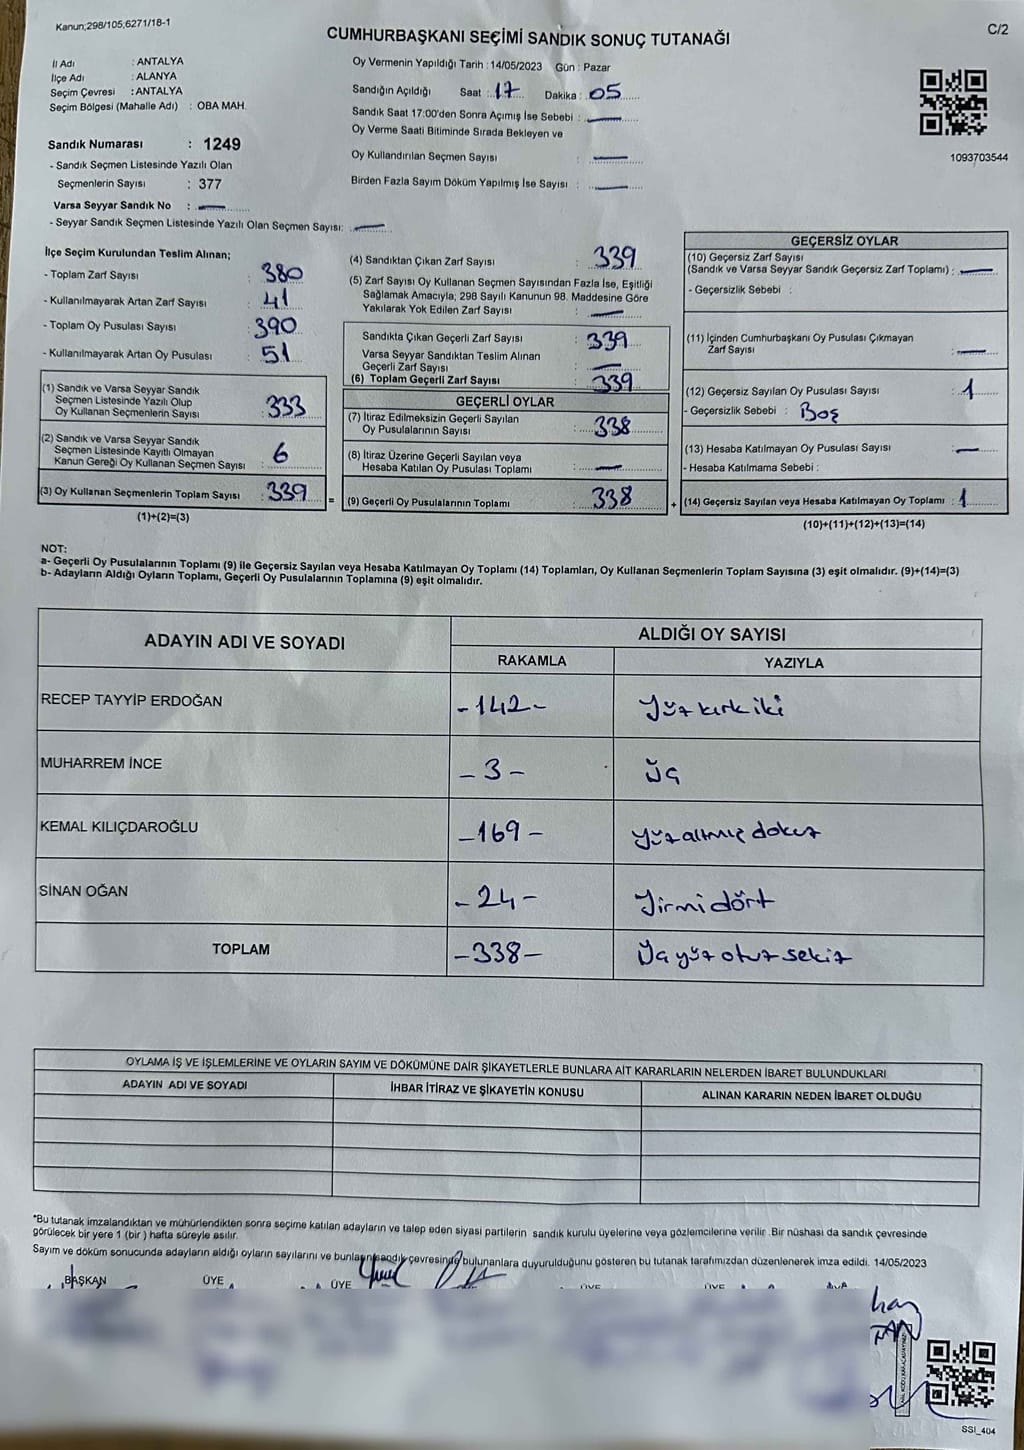 Kanun;298/105,6271/18-1
CUMHURBAŞKANI SEÇİMİ SANDIK SONUÇ TUTANAĞI
C/2
İl Adı : ANTALYA
İlçe Adı : ALANYA
Seçim Çevresi : ANTALYA
Seçim Bölgesi (Mahalle Adı) : OBA MAH.
Sandık Numarası : 1249
- Sandık Seçmen Listesinde Yazılı Olan
Seçmenlerin Sayısı : 377
Varsa Seyyar Sandık No :
- Seyyar Sandık Seçmen Listesinde Yazılı Olan Seçmen Sayısı:
Oy Vermenin Yapıldığı Tarih : 14/05/2023 Gün : Pazar
Sandığın Açıldığı Saat : 17 Dakika : 05
Sandık Saat 17:00'den Sonra Açımış İse Sebebi :
Oy Verme Saati Bitiminde Sırada Bekleyen ve
Oy Kullandırılan Seçmen Sayısı :
Birden Fazla Sayım Döküm Yapılmış İse Sayısı :
1093703544
İlçe Seçim Kurulundan Teslim Alınan;
- Toplam Zarf Sayısı : 380
- Kullanılmayarak Artan Zarf Sayısı : 41
- Toplam Oy Pusulası Sayısı : 390
- Kullanılmayarak Artan Oy Pusulası : 51
(1) Sandık ve Varsa Seyyar Sandık
Seçmen Listesinde Yazılı Olup
Oy Kullanan Seçmenlerin Sayısı : 333
(2) Sandık ve Varsa Seyyar Sandık
Seçmen Listesinde Kayıtlı Olmayan
Kanun Gereği Oy Kullanan Seçmen Sayısı : 6
(3) Oy Kullanan Seçmenlerin Toplam Sayısı : 339
(1)+(2)=(3)
(4) Sandıktan Çıkan Zarf Sayısı : 339
(5) Zarf Sayısı Oy Kullanan Seçmen Sayısından Fazla İse, Eşitliği
Sağlamak Amacıyla; 298 Sayılı Kanunun 98. Maddesine Göre
Yakılarak Yok Edilen Zarf Sayısı :
Sandıkta Çıkan Geçerli Zarf Sayısı : 339
Varsa Seyyar Sandıktan Teslim Alınan
Geçerli Zarf Sayısı :
(6) Toplam Geçerli Zarf Sayısı : 339
GEÇERLİ OYLAR
(7) İtiraz Edilmeksizin Geçerli Sayılan
Oy Pusulalarının Sayısı : 338
(8) İtiraz Üzerine Geçerli Sayılan veya
Hesaba Katılan Oy Pusulası Toplamı :
= (9) Geçerli Oy Pusulalarının Toplamı : 338
GEÇERSİZ OYLAR
(10) Geçersiz Zarf Sayısı
(Sandık ve Varsa Seyyar Sandık Geçersiz Zarf Toplamı) :
- Geçersizlik Sebebi :
(11) İçinden Cumhurbaşkanı Oy Pusulası Çıkmayan
Zarf Sayısı :
(12) Geçersiz Sayılan Oy Pusulası Sayısı : 1
- Geçersizlik Sebebi : Boş
(13) Hesaba Katılmayan Oy Pusulası Sayısı :
- Hesaba Katılmama Sebebi :
+ (14) Geçersiz Sayılan veya Hesaba Katılmayan Oy Toplamı : 1
(10)+(11)+(12)+(13)=(14)
NOT:
a- Geçerli Oy Pusulalarının Toplamı (9) ile Geçersiz Sayılan veya Hesaba Katılmayan Oy Toplamı (14) Toplamları, Oy Kullanan Seçmenlerin Toplam Sayısına (3) eşit olmalıdır. (9)+(14)=(3)
b- Adayların Aldığı Oyların Toplamı, Geçerli Oy Pusulalarının Toplamına (9) eşit olmalıdır.
ADAYIN ADI VE SOYADI
ALDIĞI OY SAYISI
RAKAMLA
YAZIYLA
RECEP TAYYİP ERDOĞAN -142- Yüz kırk iki
MUHARREM İNCE -3- Üç
KEMAL KILIÇDAROĞLU -169- Yüz altmış dokuz
SİNAN OĞAN -24- Yirmi dört
TOPLAM -338- Üç yüz otuz sekiz
OYLAMA İŞ VE İŞLEMLERİNE VE OYLARIN SAYIM VE DÖKÜMÜNE DAİR ŞİKAYETLERLE BUNLARA AİT KARARLARIN NELERDEN İBARET BULUNDUKLARI
ADAYIN ADI VE SOYADI
İHBAR İTİRAZ VE ŞİKAYETİN KONUSU
ALINAN KARARIN NEDEN İBARET OLDUĞU
*Bu tutanak imzalandıktan ve mühürlendikten sonra seçime katılan adayların ve talep eden siyasi partilerin sandık kurulu üyelerine veya gözlemcilerine verilir .Bir nüshası da sandık çevresinde
görülecek bir yere 1 (bir ) hafta süreyle asılır.
Sayım ve döküm sonucunda adayların aldığı oyların sayılarını ve bunların sandık çevresinde bulunanlara duyurulduğunu gösteren bu tutanak tarafımızdan düzenlenerek imza edildi. 14/05/2023
BAŞKAN ÜYE ÜYE ÜYE ÜYE
SSI_404